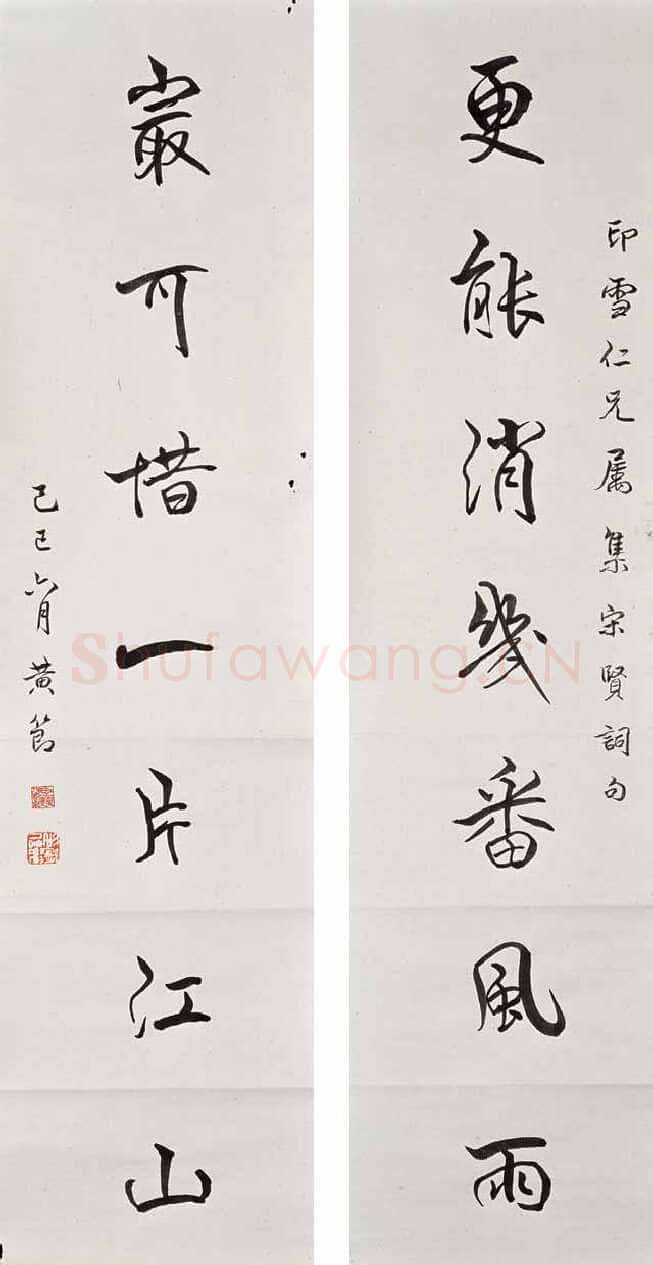 印雪仁兄属集宋賢詞句
更能消幾番風雨
最可惜一片江山
己巳六月黄節
Shufawang.CN